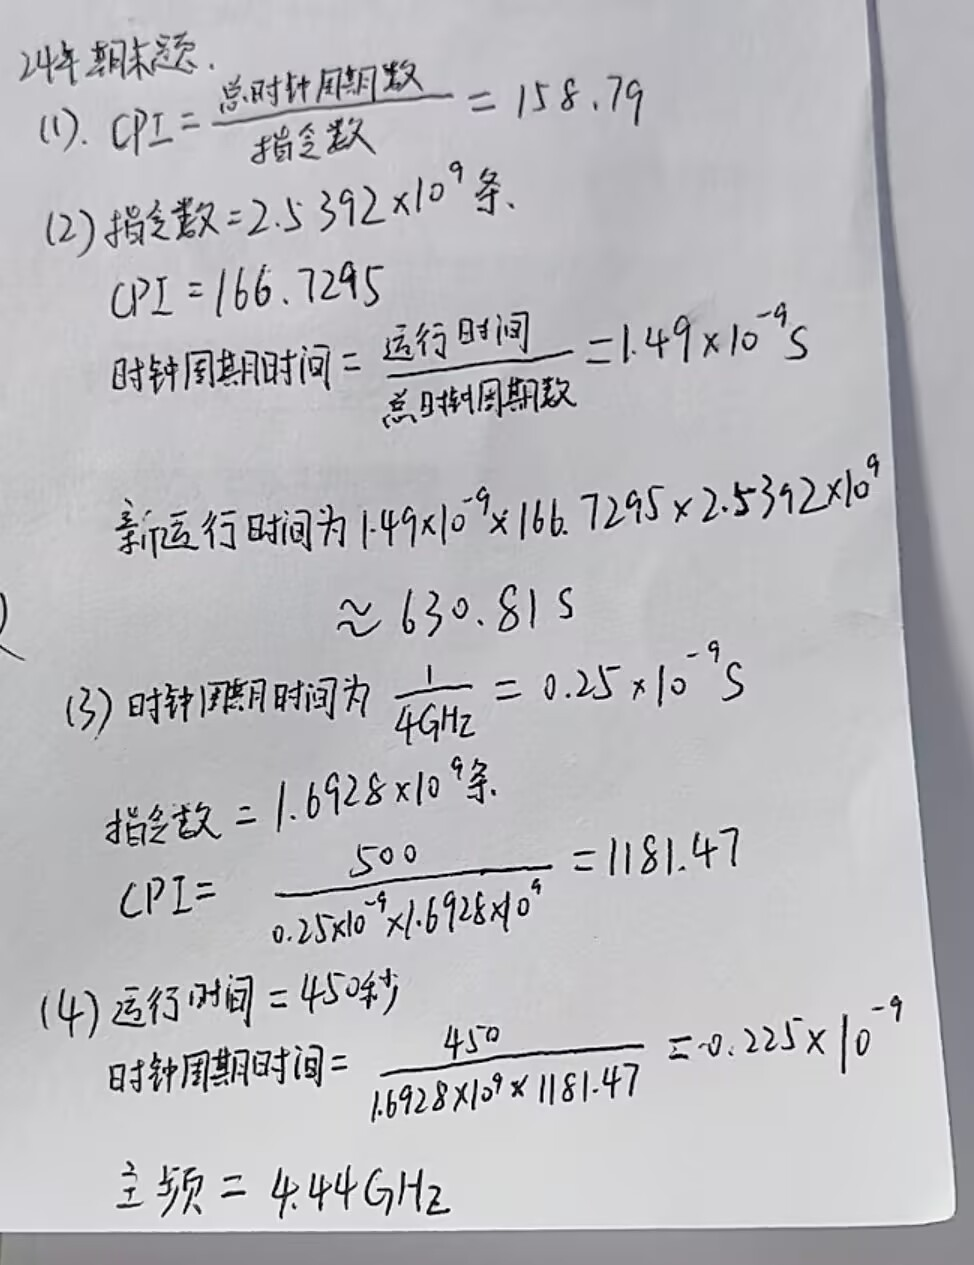 24年期末题.
(1). CPI = 总时钟周期数/指令数 = 158.79
(2) 指令数=2.5392×10⁹条.
CPI = 166.7295
时钟周期时间 = 运行时间/总时钟周期数 = 1.49×10⁻⁹S
新运行时间为 1.49×10⁻⁹×166.7295×2.5392×10⁹
≈ 630.81 S
(3) 时钟周期时间为 1/4GHz = 0.25×10⁻⁹S
指令数 = 1.6928×10⁹条.
CPI = 500/0.25×10⁻⁹×1.6928×10⁹ = 1181.47
(4) 运行时间 = 450秒
时钟周期时间 = 450/1.6928×10⁹×1181.47 = 0.225×10⁻⁹
主频 = 4.44GHz